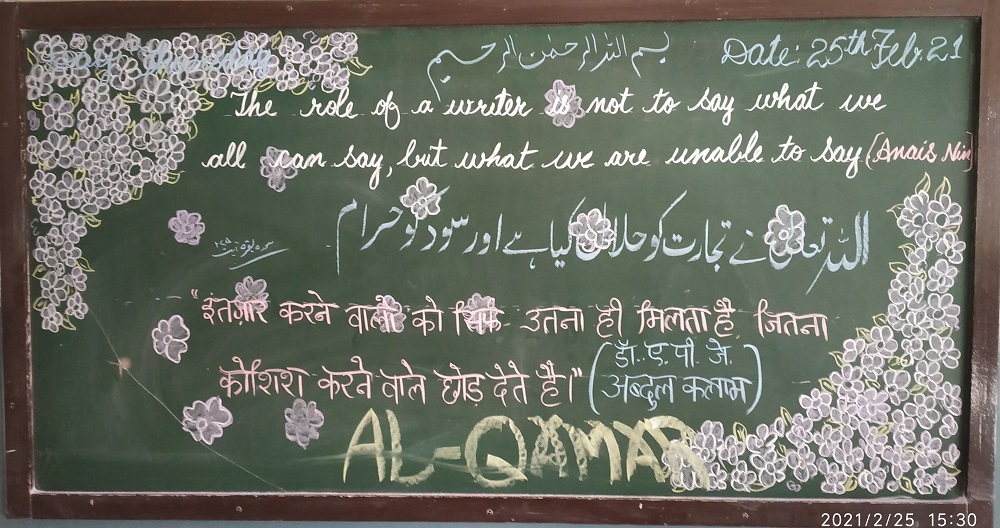 Day: Thursday
بسم اللہ الرحمٰن الرحیم
Date: 25th Feb. 21
The role of a writer is not to say what we
all can say, but what we are unable to say (Anais Nin)
اللہ تعالیٰ نے تجارت کو حلال کیا ہے اور سود کو حرام
سورہ بقرہ آیت ۲۷۵
"इंतज़ार करने वालो को सिर्फ उतना ही मिलता है, जितना
कोशिश करने वाले छोड़ देते है।" (डॉ. ए. पी. जे. अब्दुल कलाम)
AL-QAMAR
2021/2/25 15:30